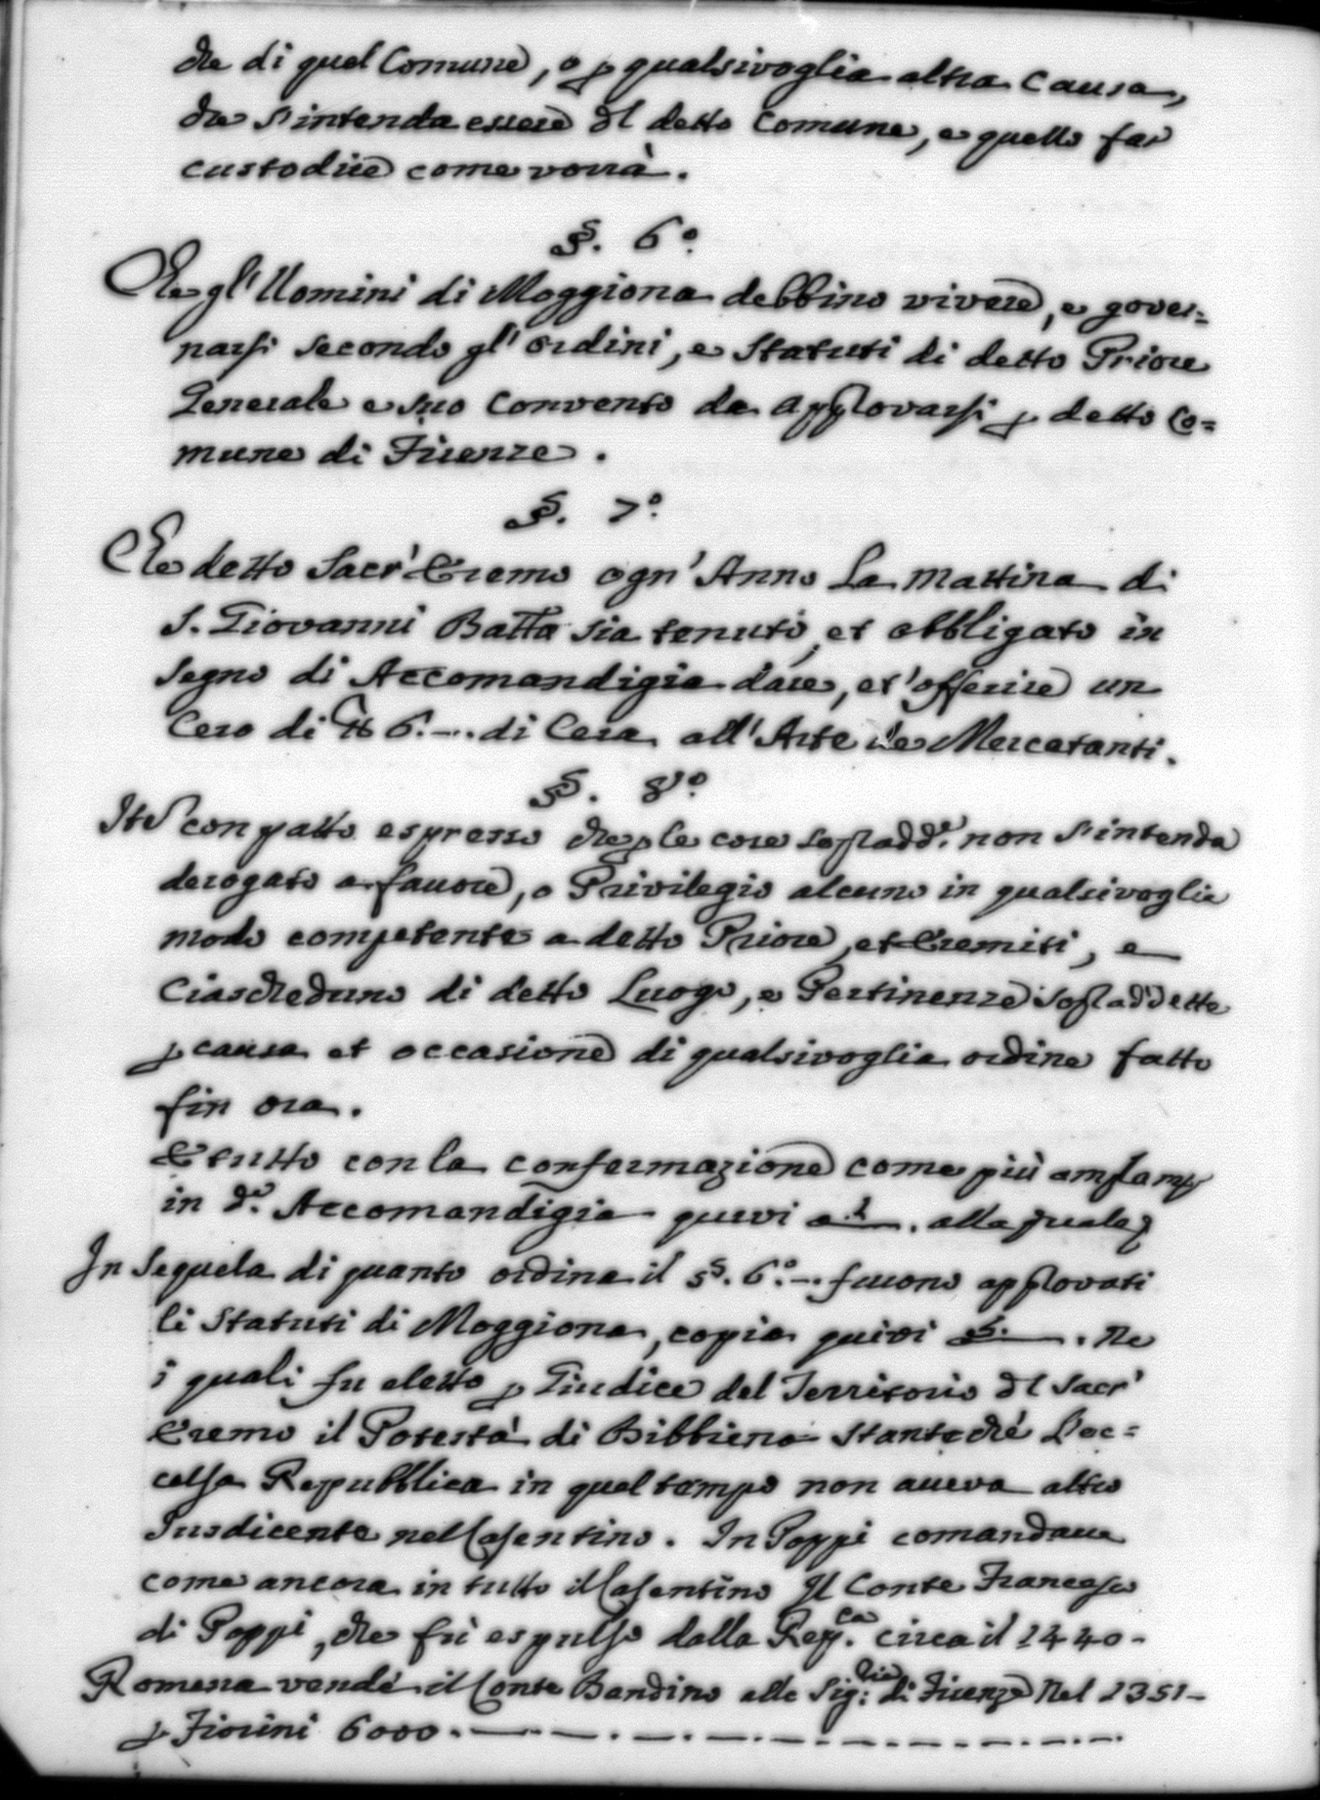 che di quel Comune, o p qualsivoglia altra Causa,
che s'intenda essere dl detto Comune, e quello far
custodire come vorrà.
§. 6°.
Che gl'Uomini di Moggiona debbino vivere, e gover=
narsi secondo gl'ordini, e Statuti di detto Priore
Generale e suo Convento da approvarsi p detto Co=
mune di Firenze.
§. 7°.
Che detto Sacr'Eremo ogn'Anno La mattina di
S. Giovanni Batta sia tenuto, et obbligato in
segno di Accomandigia dare, et'offerire un
Cero di ℔ 6.-.. di Cera all'Arte de Mercatanti.
§. 8°.
Ite con patto espresso che p le cose sopradde. non s'intenda
derogato a favore, o Privilegio alcuno in qualsivoglia
modo competente a detto Priore, et Eremiti, e
Ciascheduno di detto Luogo, e Pertinenze sopraddette
p causa et occasione di qualsivoglia ordine fatto
fin ora.
E tutto con la confermazione come più amplamte
in da. Accomandigia quivi a . alla quale
In sequela di quanto ordina il §. 6°.-. furono approvati
li Statuti di Moggiona, copia quivi . Ne
i quali fu eletto p Giudice del Territorio dl Sacr'
Eremo il Potestà di Bibbiena stante chè L'ec=
celsa Repubblica in quel tempo non aueva altro
Iusdicente nel Casentino. In Poppi comandaua
come ancora in tutto il Casentino Il Conte Francesco
di Poppi, che fù espulso dalla Rep.ca circa il 1440-
Romena vendè il Conte Bandino alla Sig:ria di Firenze Nel 1351-
p Fiorini 6000.